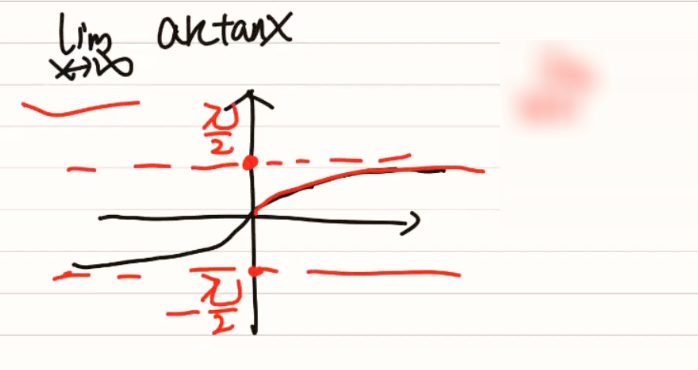 lim arctanx
x→∞
π/2
-π/2